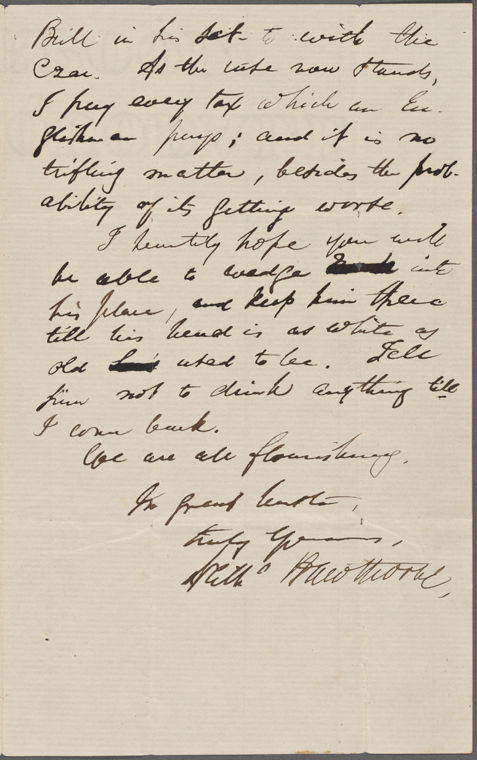 Bull in his set-to with the
Czar. As the case now stands,
I pay every tax which an En-
glishman pays; and it is no
trifling matter, besides the prob-
ability of its getting worse.
I heartily hope you will
be able to wedge into
his place, and keep him there
till his head is as white as
old used to be. Tell
him not to drink anything till
I come back.
We are all flourishing.
In great haste,
truly Yours,
Nathl Hawthorne,